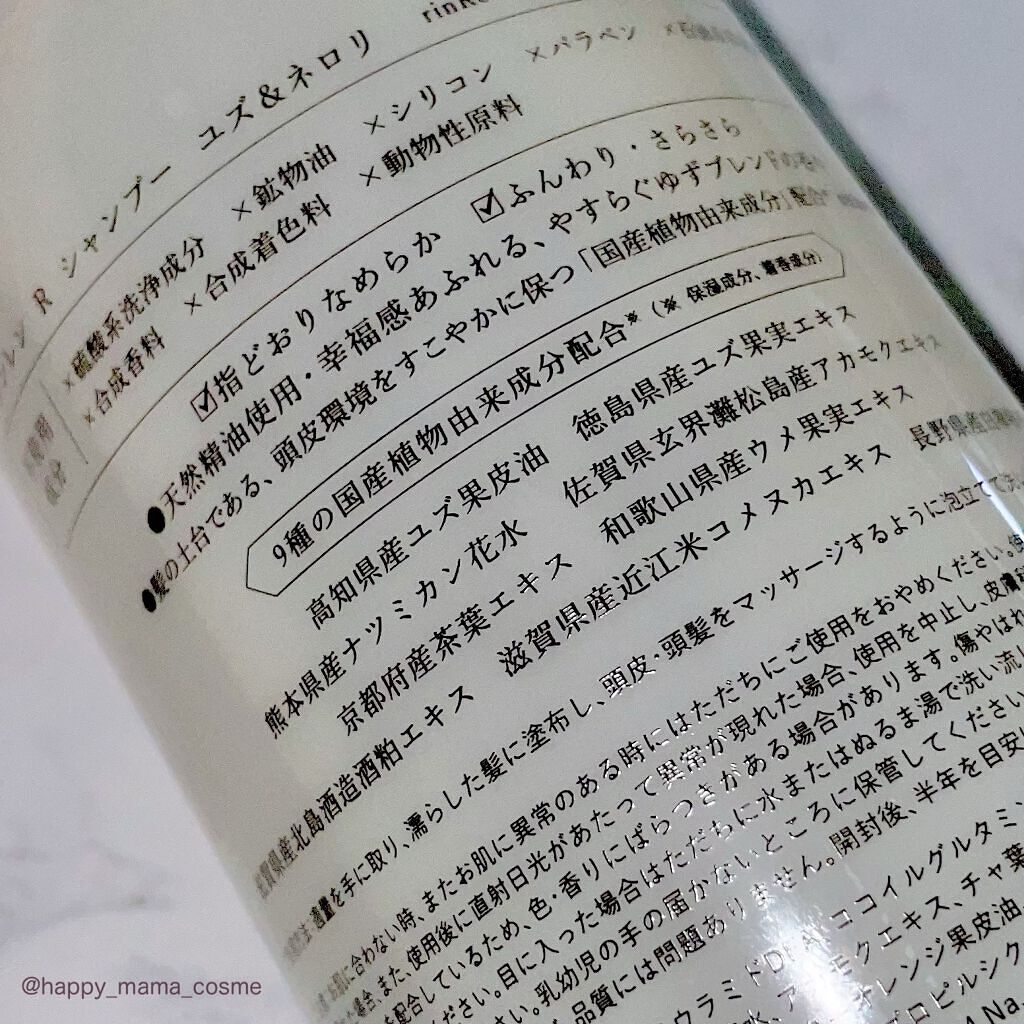 R シャンプー ユズ&ネロリ
×硫酸系洗浄成分 ×鉱物油 ×シリコン ×パラベン
×合成香料 ×合成着色料 ×動物性原料
☑指どおりなめらか ☑ふんわり・さらさら
●天然精油使用・幸福感あふれる、やすらぐゆずブレンドの
●髪の土台である、頭皮環境をすこやかに保つ「国産植物由来成分」配合
9種の国産植物由来成分配合※(※ 保湿成分、着香成分)
高知県産ユズ果皮油 徳島県産ユズ果実エキス
熊本県産ナツミカン花水 佐賀県玄界灘松島産アカモクエキス
京都府産茶葉エキス 和歌山県産ウメ果実エキス
佐賀県産北島酒造酒粕エキス 滋賀県産近江米コメヌカエキス 長野県産
適量を手に取り、濡らした髪に塗布し、頭皮・頭髪をマッサージするように泡立てて
お肌に合わない時、またお肌に異常のある時にはただちにご使用をおやめください。
場合、また、使用後に直射日光があたって異常が現れた場合、使用を中止し、皮膚科
を配合しているため、色・香りにばらつきがある場合があります。傷やはれ
ださい。目に入った場合はただちに水またはぬるま湯で洗い流し
ださい。乳幼児の手の届かないところに保管してください
品質には問題ありません。開封後、半年を目安に
ココイルグルタミン
モクエキス、チャ葉
オレンジ果皮油
プロピルシク
Na
@happy_mama_cosme